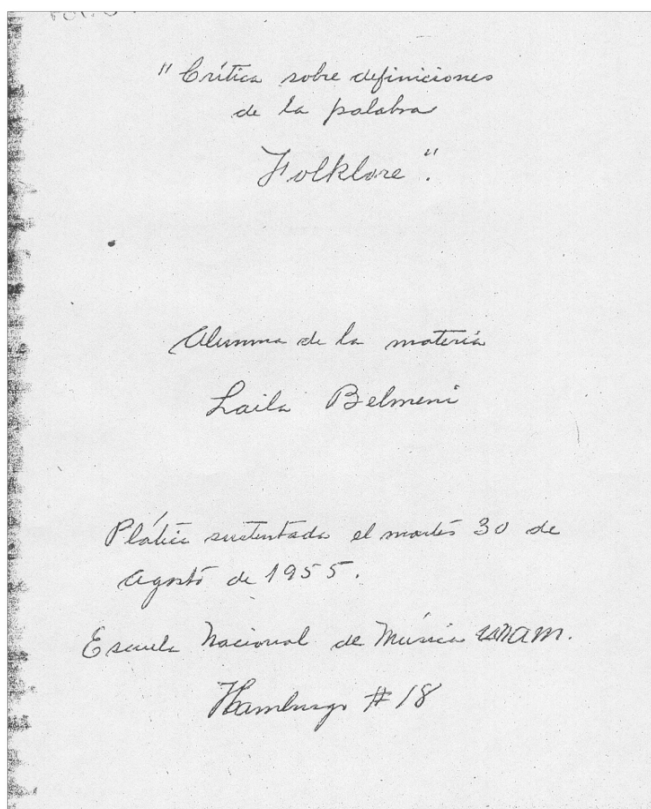 "Crítica sobre definiciones
de la palabra
Folklore".
Alumna de la materia
Laila Belmeni
Plática sustentada el martes 30 de
agosto de 1955.
Escuela Nacional de Música UNAM.
Hamburgo # 18